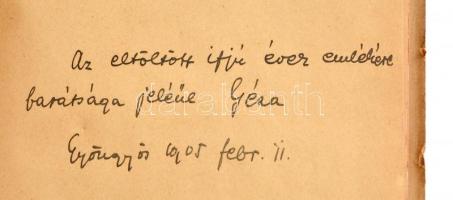 Az eltöltött ifjú évek emlékére
barátsága jeléül Géza
darabanth
Gyöngyös 1905 febr. 11.